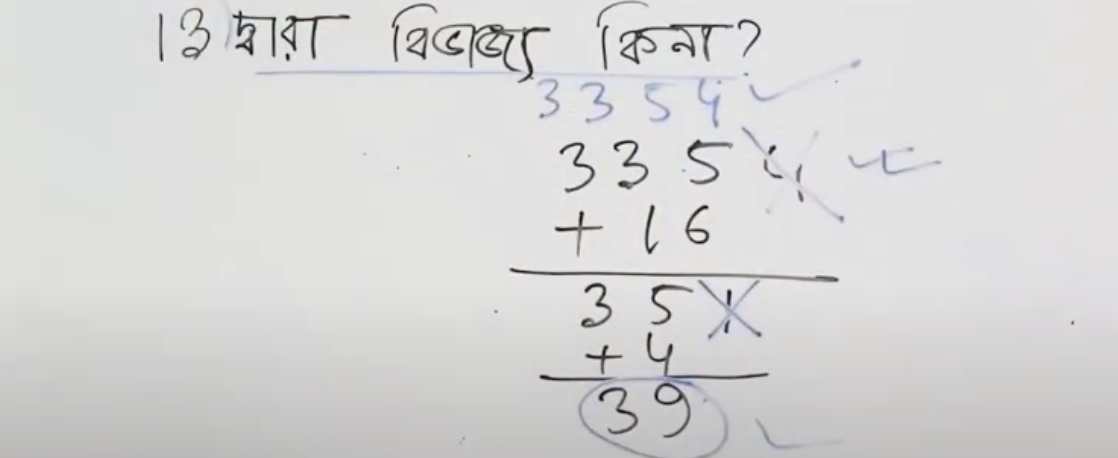 13 দ্বারা বিভাজ্য কিনা?
3354
3354
+ 16
351
+ 4
39